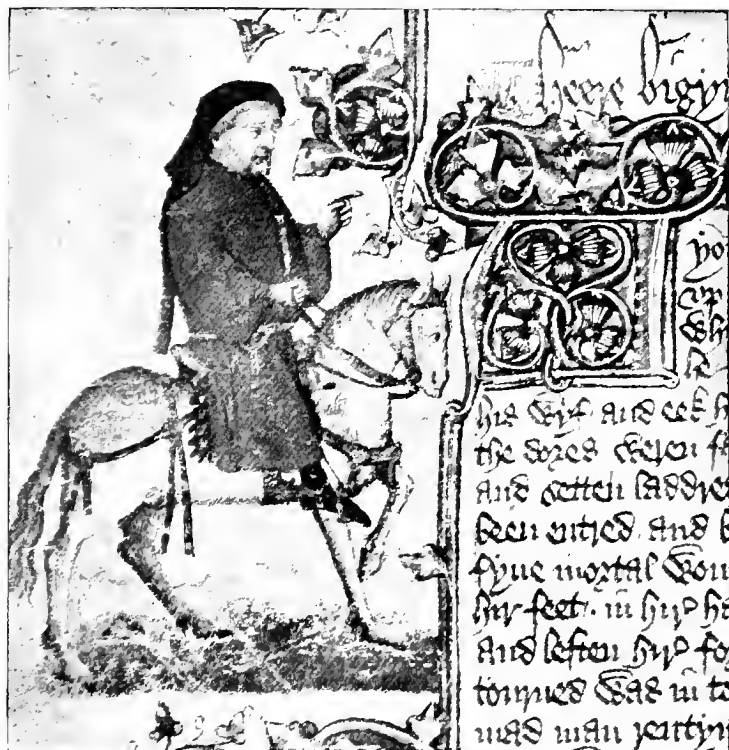 heere bigyn
yo
vp
wh
he
his wyf and eek h
the dores weren f
and setten laddres
been entred and b
fyue mortal wou
hir feet. in hir h
and leften hir fo
tourned was in to
mad man rentyn